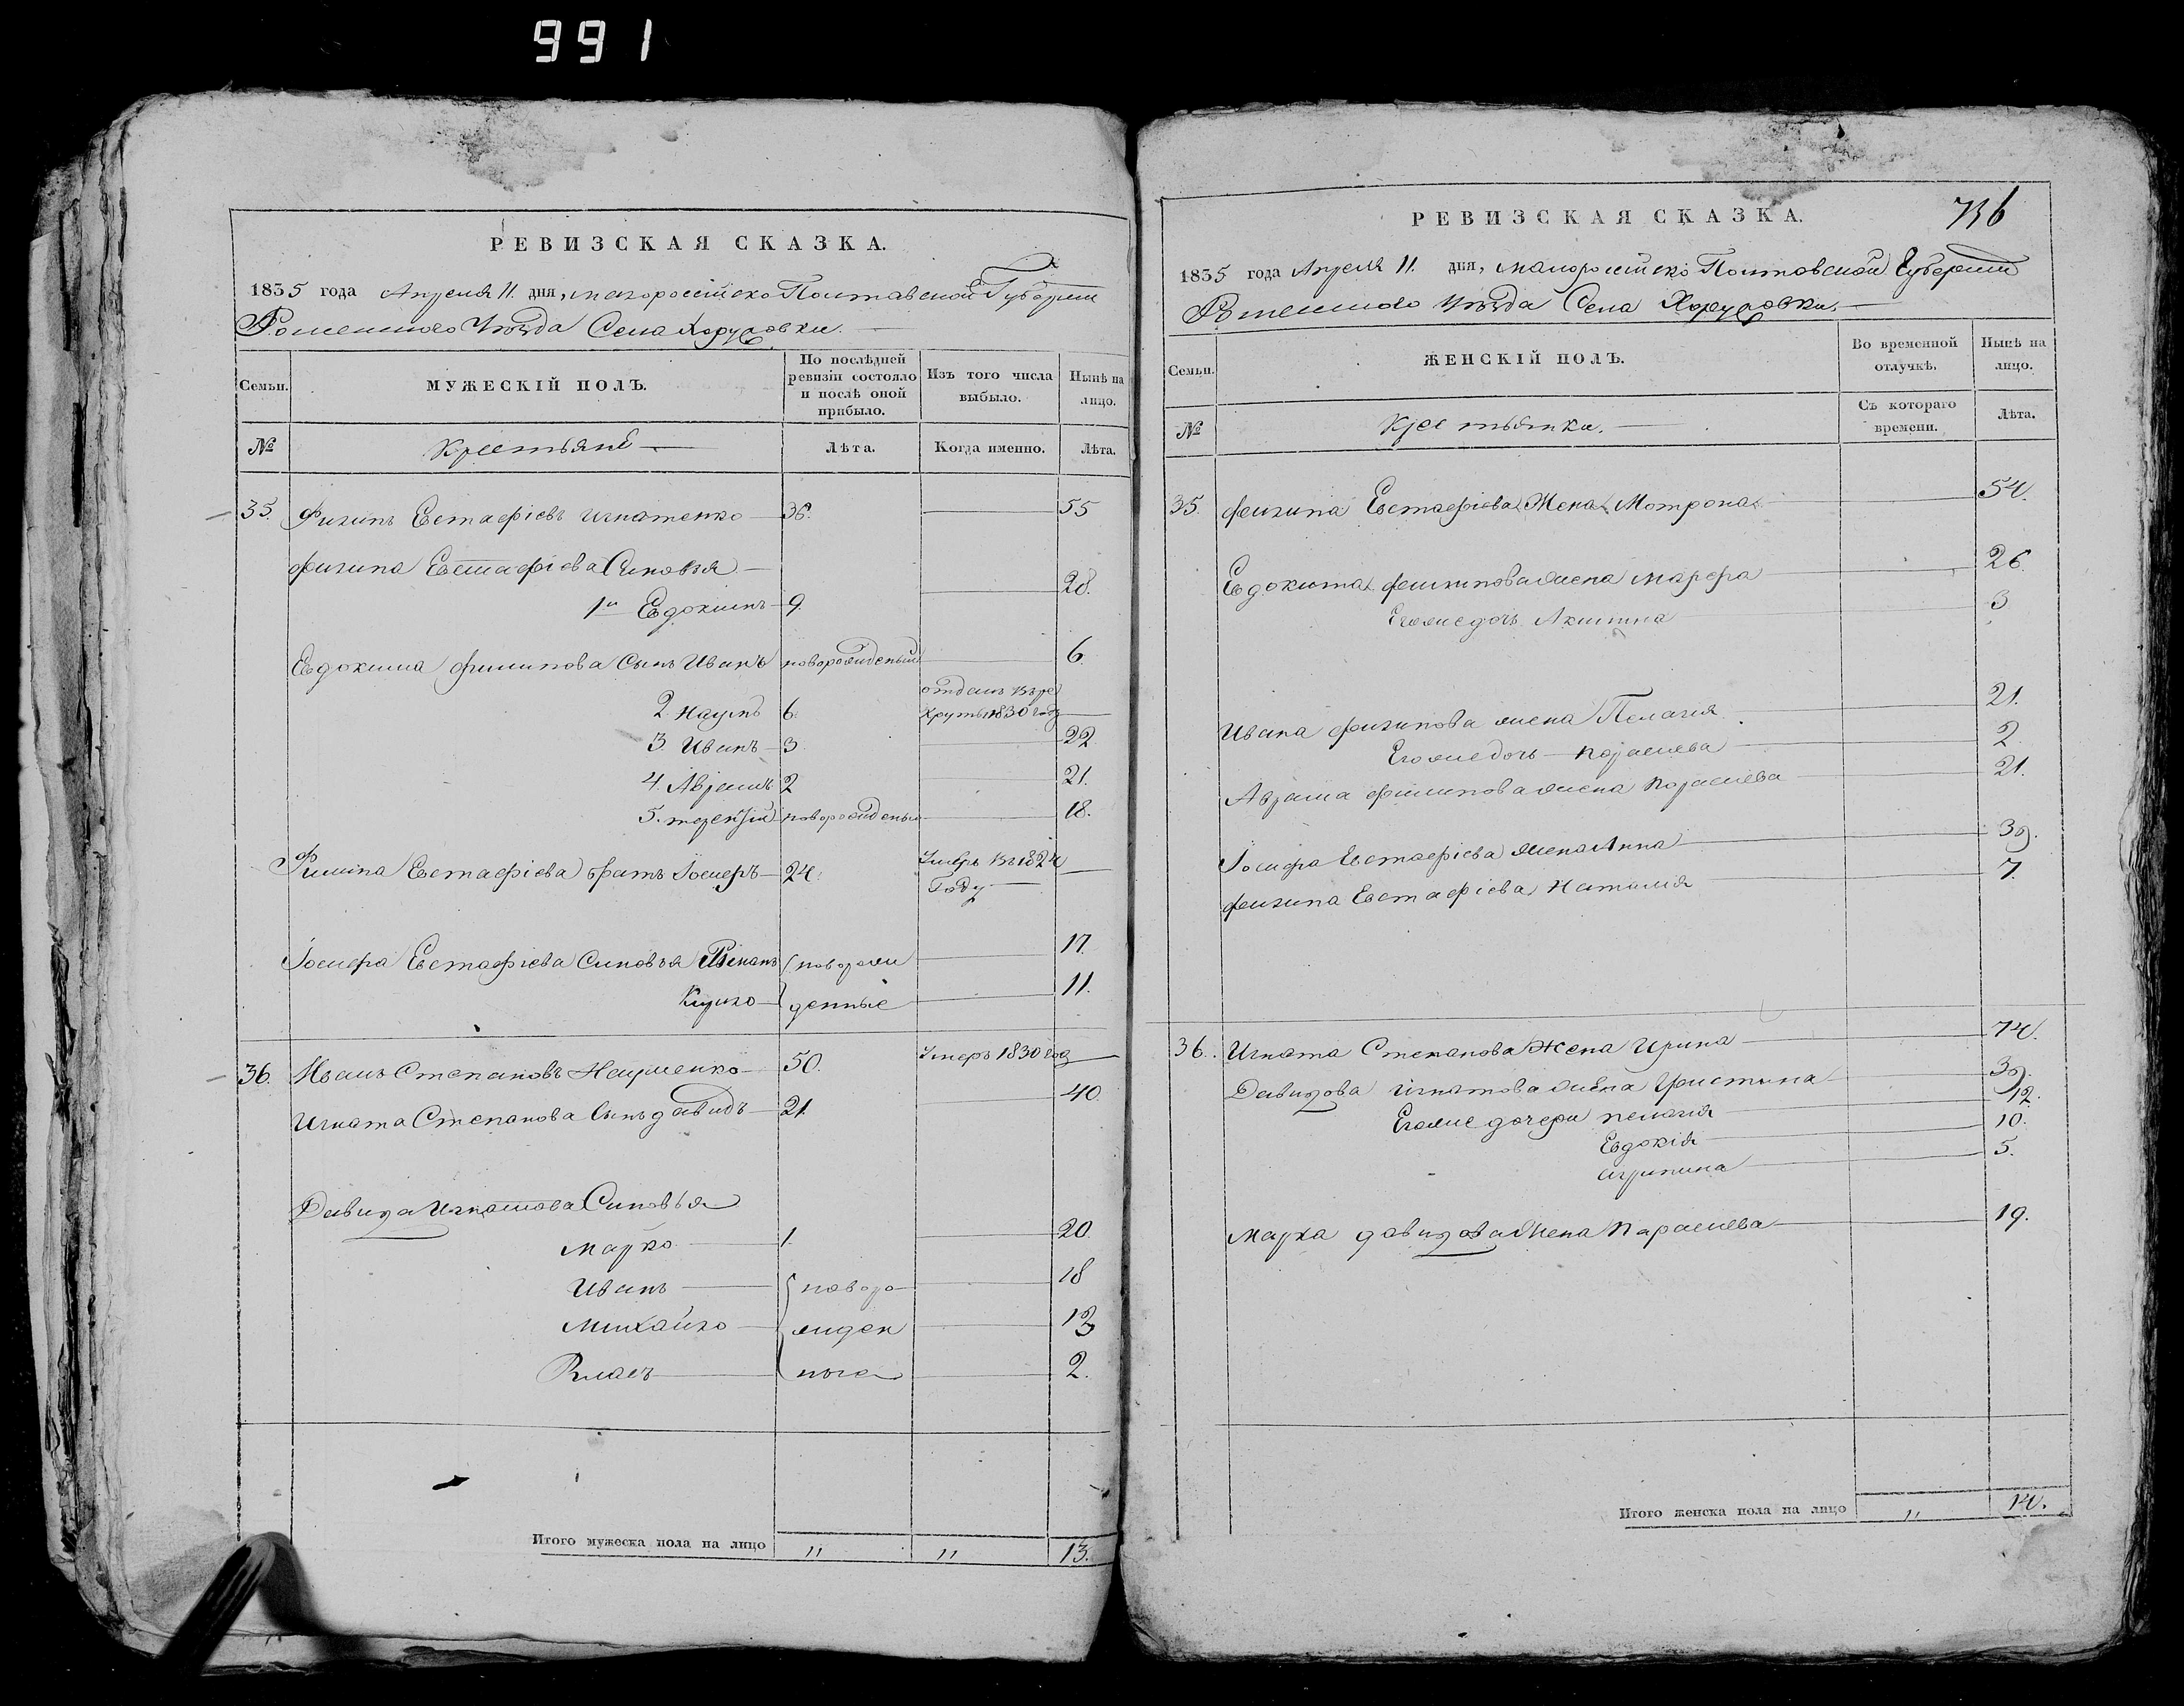 991
РЕВИЗСКАЯ СКАЗКА.
1835 года Апреля 11. дня, малоросійско Полтавской Губерніи
Роменского Уѣзда Села Хоружовки.
Семьи.
МУЖЕСКІЙ ПОЛЪ.
По послѣдней ревизіи состояло и послѣ оной прибыло.
Изъ того числа выбыло.
Нынѣ на лицо.
№
Крестьяне
Лѣта.
Когда именно.
Лѣта.
35. Филипъ Евстафіевъ Игнатенко 36. 55
Филипа Евстафіева Синовья
1й Евдокимъ 9. 28.
Евдокима Филипова Сынъ Иванъ новорожденый 6.
2. Наумъ 6. отданъ въ ре
круты 1830 году
3. Иванъ 3. 22
4. Аврамъ 2 21.
5. терентій новорожденый 18.
Филипа Евстафіева братъ Іосифъ 24. Умеръ въ 1824
Году
Іосифа Евстафіева Синовья Романъ новорожи 17.
Кирило денные 11.
36. Иванъ Степановъ Науменко 50. Умеръ 1830 год
Игната Степанова Сынъ давидъ 21. 40.
Давида Игнатова Синовья
Марко 1. 20.
Иванъ новоро 18
Михайло жден 13
Власъ ные 2.
Итого мужеска пола на лицо " " 13.
736
РЕВИЗСКАЯ СКАЗКА.
1835 года Апреля 11. дня, малоросійско Полтовской Губерніи
Роменского Уѣзда Села Хоружовки.
Семьи.
ЖЕНСКІЙ ПОЛЪ.
Во временной отлучкѣ.
Нынѣ на лицо.
№
Крестьянки.
Съ котораго времени.
Лѣта.
35. Филипа Евстафіева Жена Мотрона 54.
Евдокима Филипова жена марфа 26.
Егоже дочь Акилина 3
Ивана Филипова жена Пелагія 21.
Егоже дочь Парасиева 2
Аврама Филипова жена Парасиева 21.
Іосифа Евстафіева жена Анна 39.
Филипа Евстафіева Наталія 7.
36. Игната Степанова Жена Ирина 74.
Давидова Игнатова жена Христина 39.
Егоже дочери пелагія 12.
Евдокія 10.
агрипина 5.
Марка давидова Жена Парасиева 19.
Итого женска пола на лицо " 14.